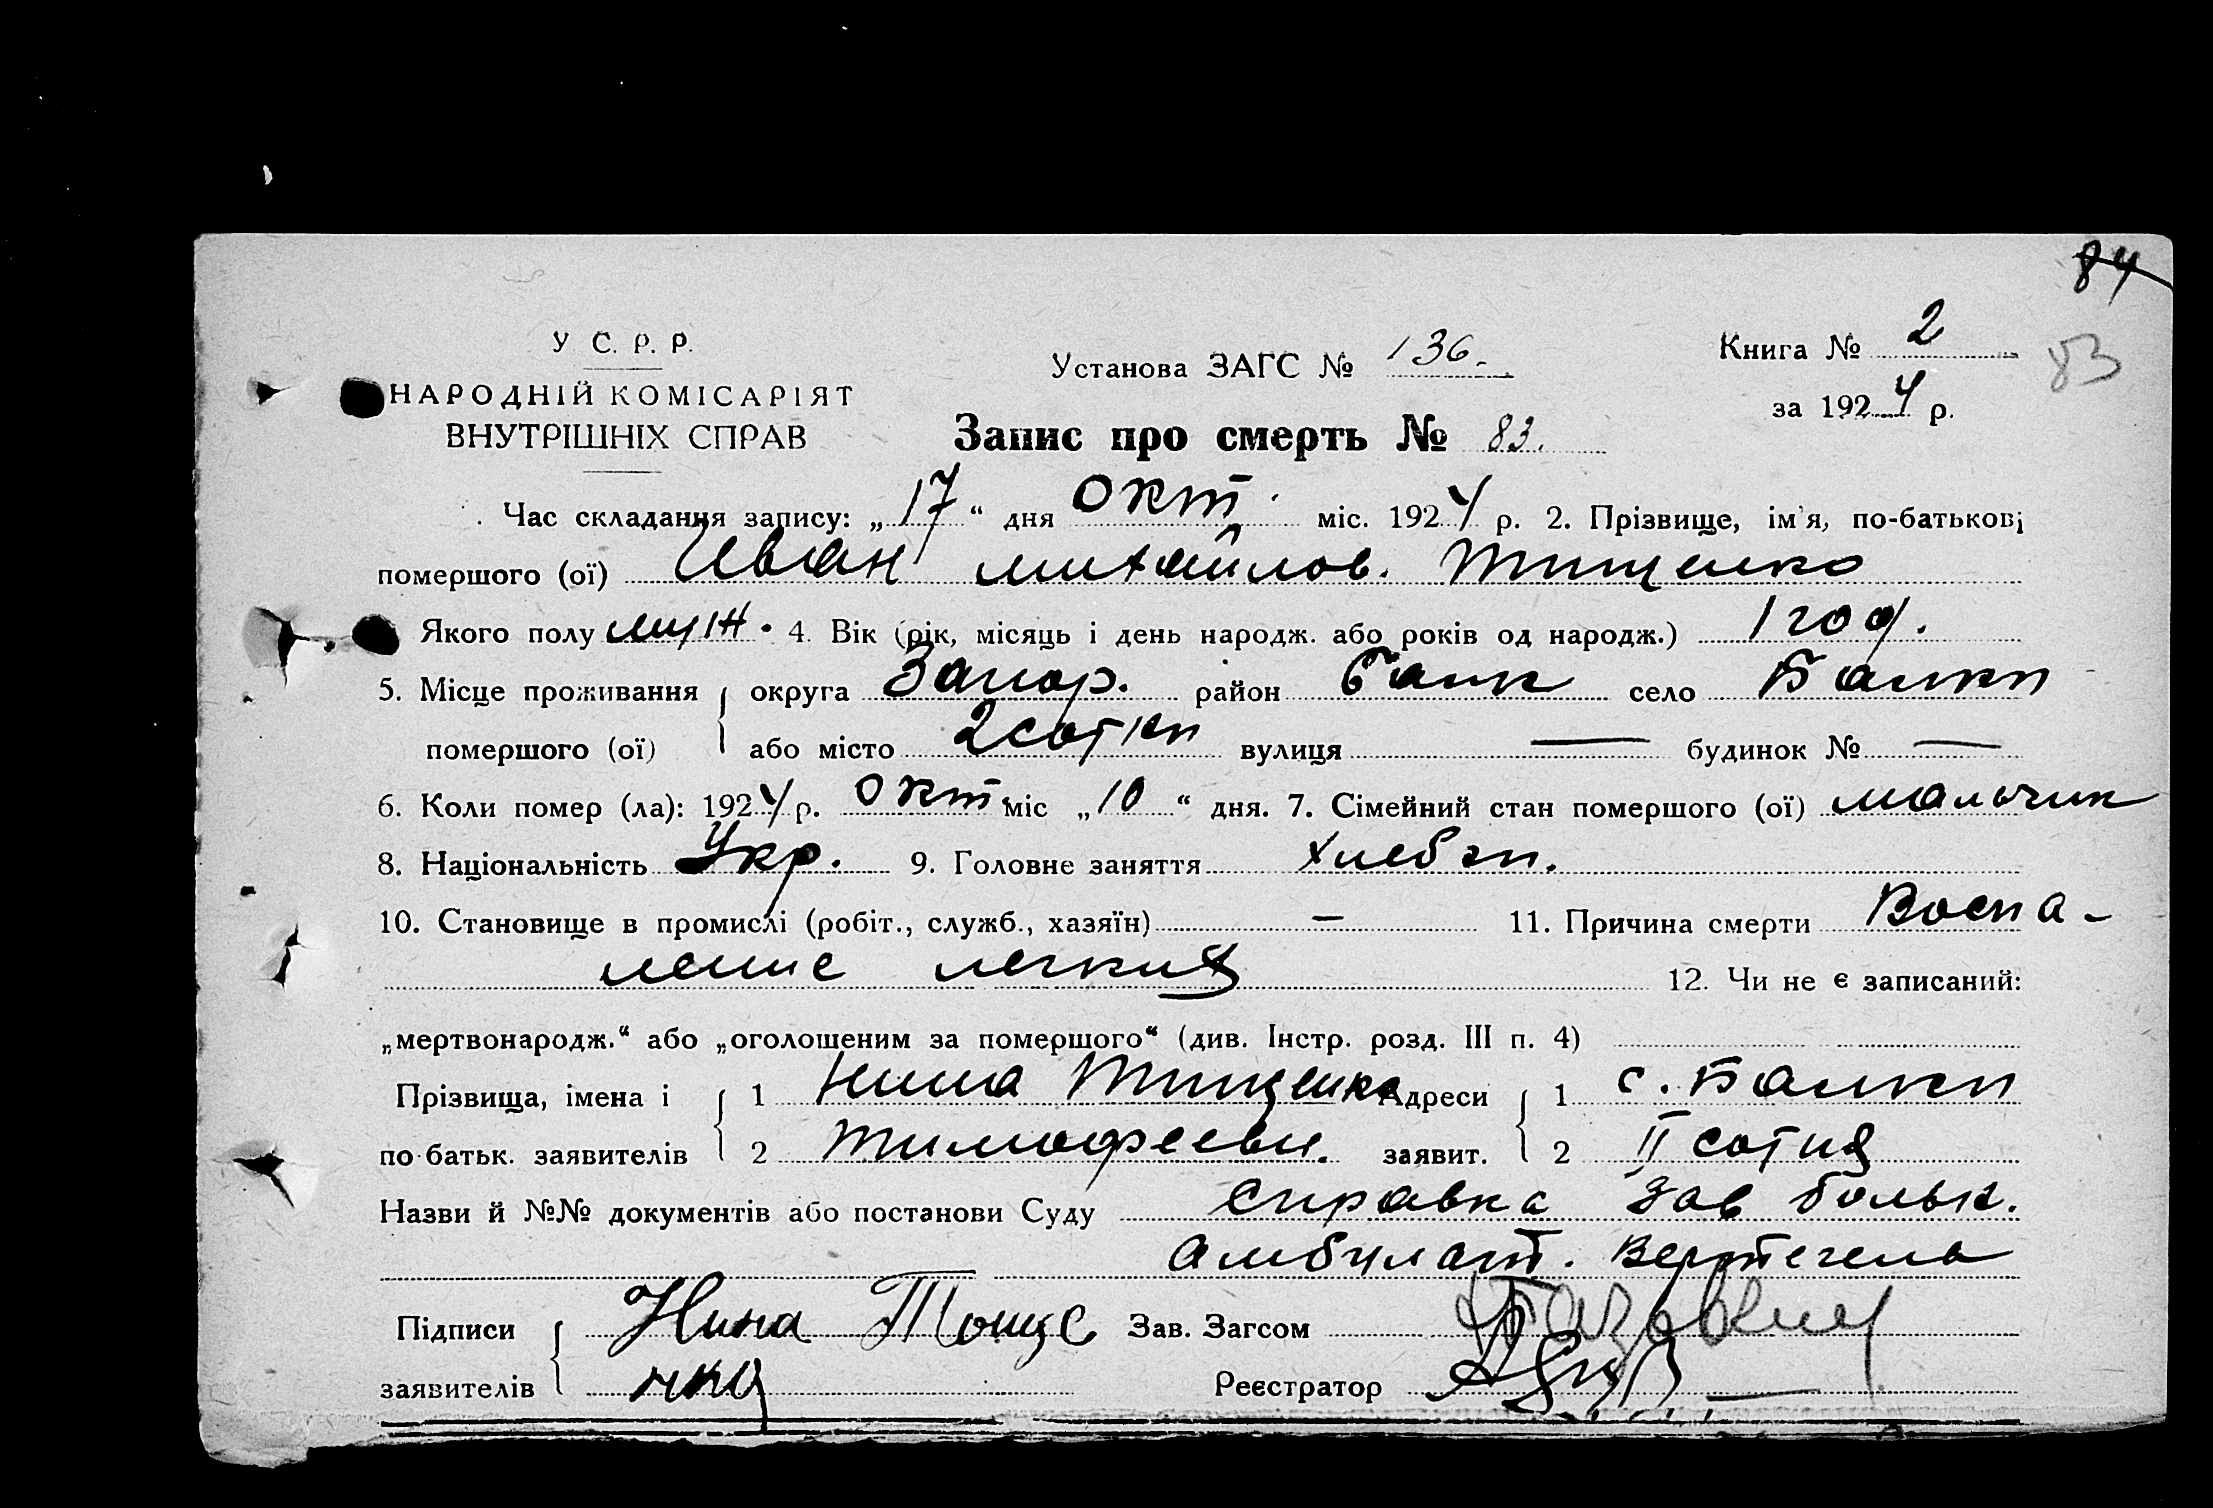 84
У С. Р. Р.
Установа ЗАГС № 136.
Книга № 2
83
НАРОДНІЙ КОМІСАРІЯТ
за 1924 р.
ВНУТРІШНІХ СПРАВ
Запис про смерть № 83.
Час складання запису: „17“ дня Окт. міс. 1924 р. 2. Прізвище, ім'я, по-батькові
помершого (ої) Иван Михайлов. Тищенко
Якого полу муж. 4. Вік (рік, місяць і день народж. або років од народж.) 1 год.
5. Місце проживання округа Запор. район Балк село Балки
помершого (ої) або місто 2 сотки вулиця — будинок № —
6. Коли помер (ла): 1924 р. Окт. міс „10“ дня. 7. Сімейний стан помершого (ої) мальчик
8. Національність Укр. 9. Головне заняття хлебоп.
10. Становище в промислі (робіт., служб., хазяїн) — 11. Причина смерти Воспа-
ление легких 12. Чи не є записаний:
„мертвонародж.“ або „оголошеним за помершого“ (див. Інстр. розд. III п. 4)
Прізвища, імена і 1 Нина Тищенко Адреси 1 с. Балки
по батьк. заявителів 2 Тимофеевн. заявит. 2 II сотня
Назви й №№ документів або постанови Суду Справка Зав больн.
Амбулат. Вертегела
Підписи Нина Тоще Зав. Загсом
заявителів нка Реєстратор